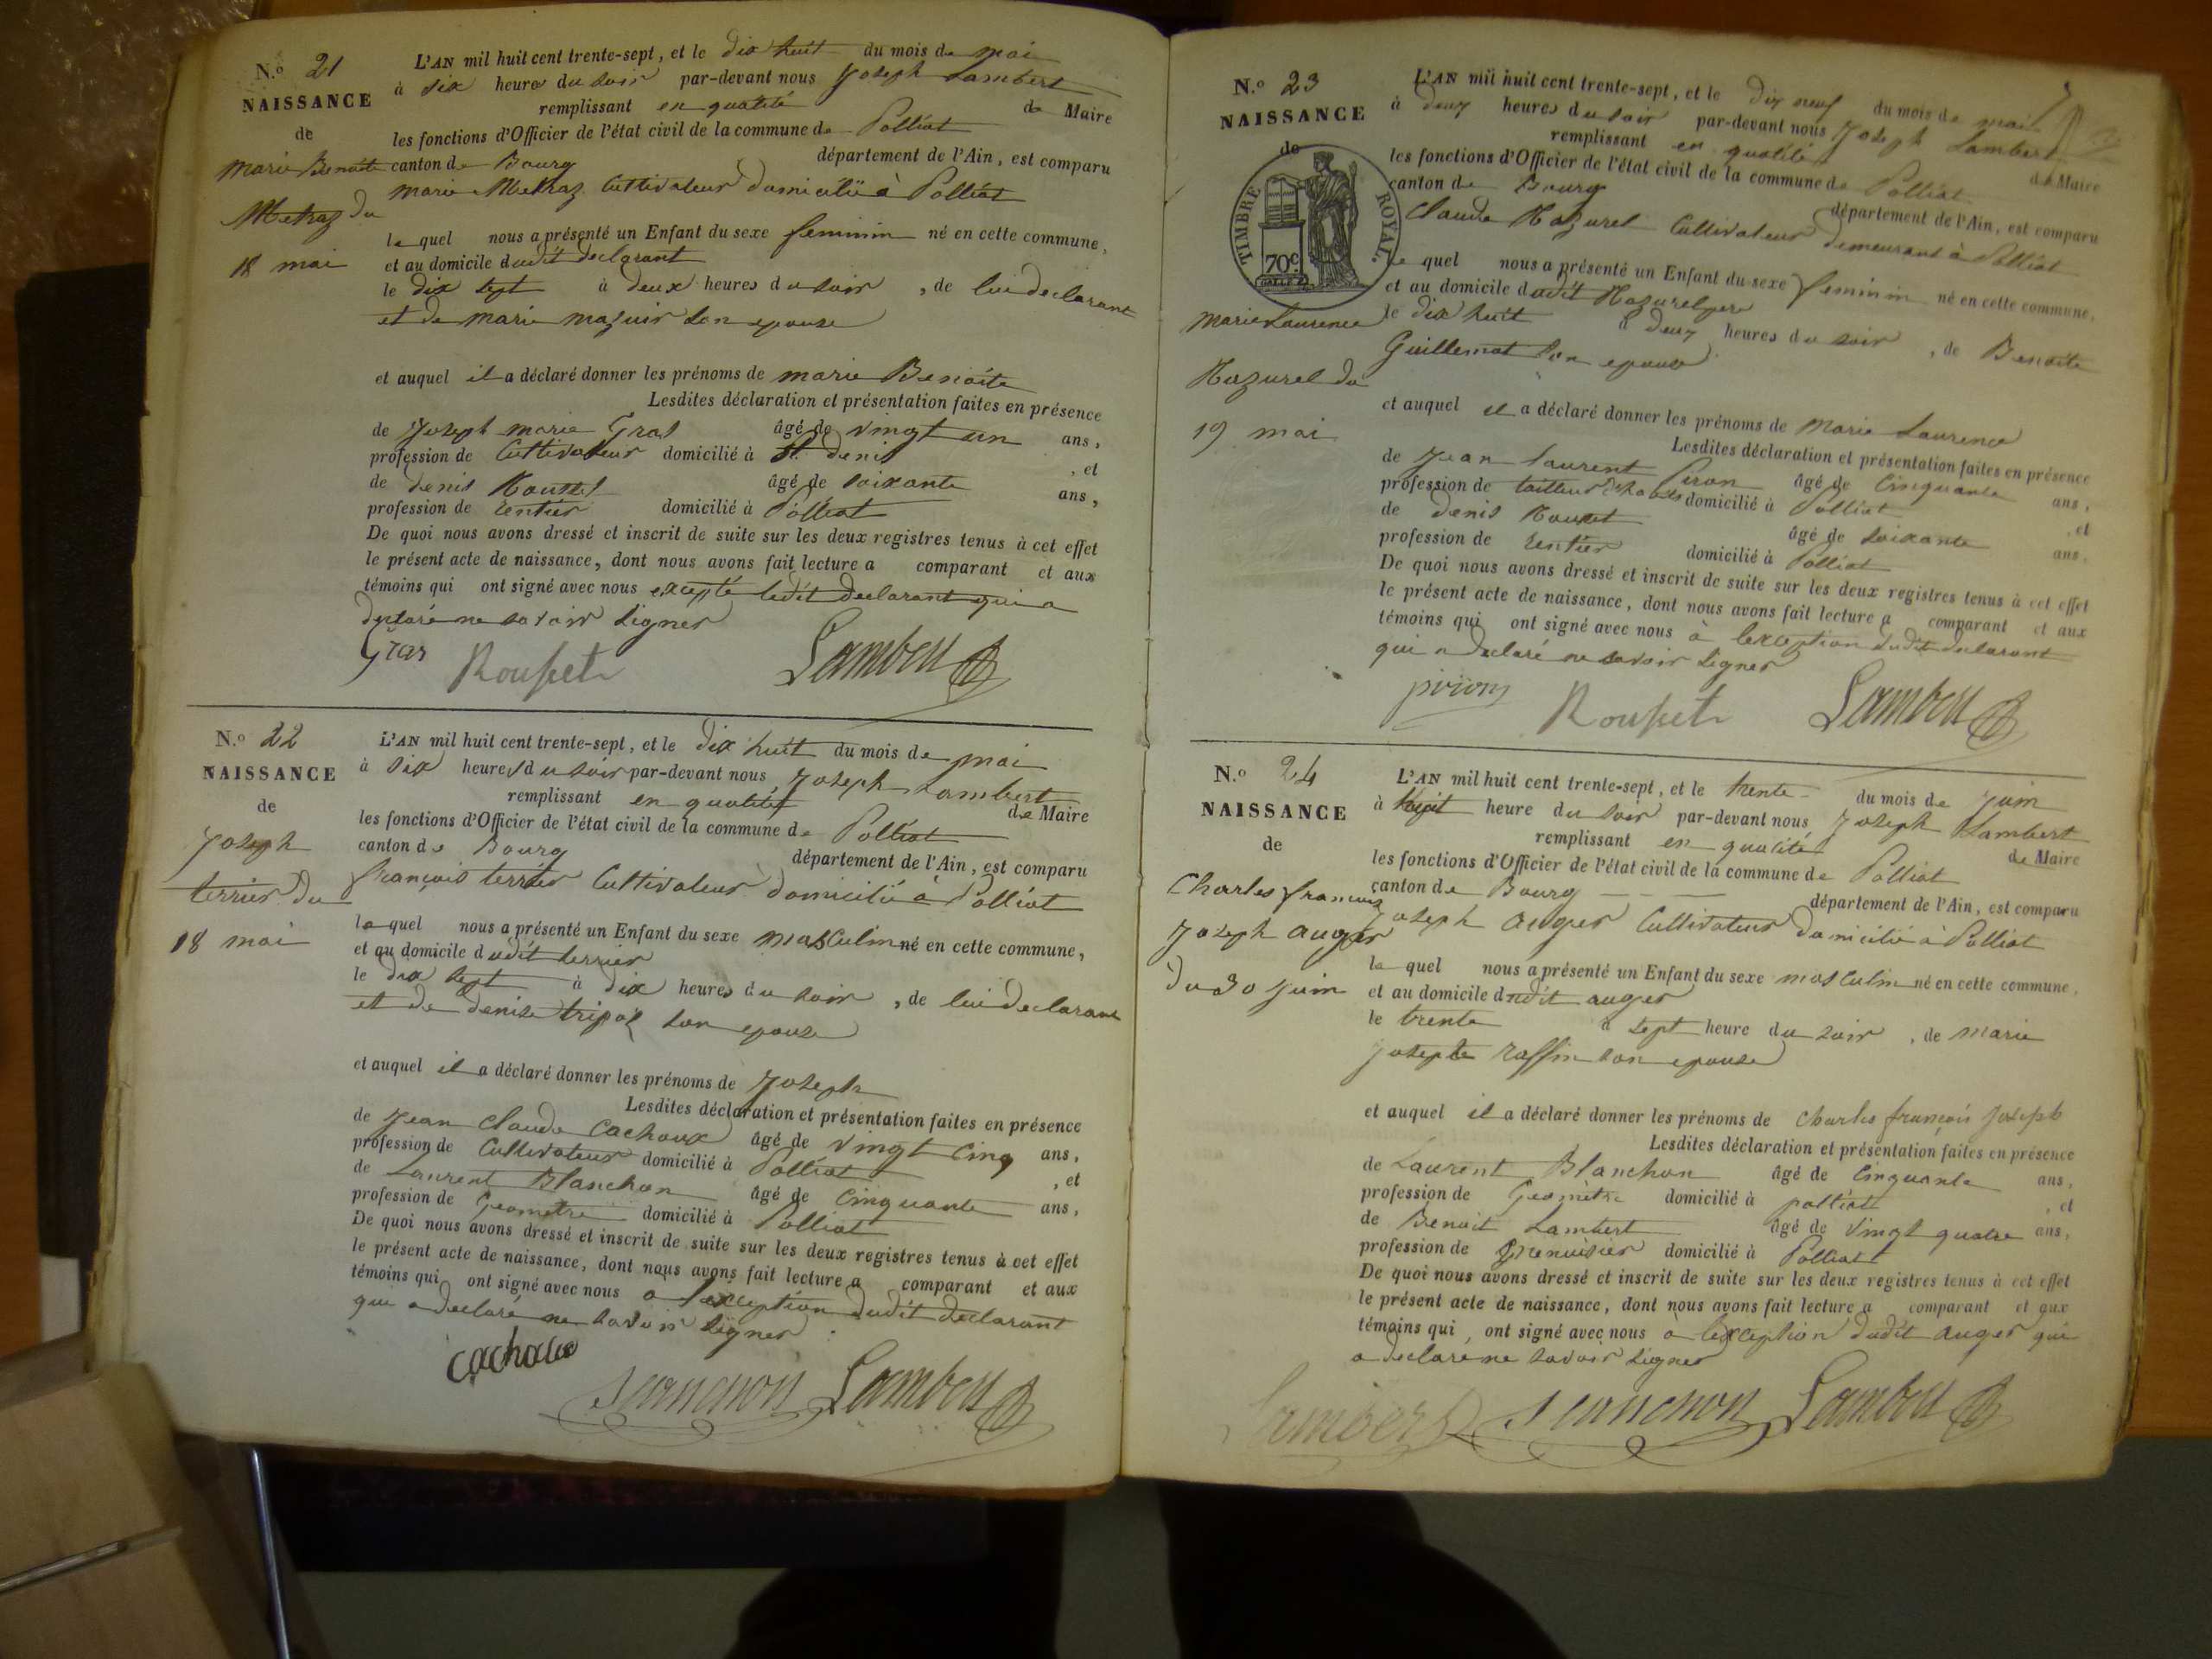 N.º 21
NAISSANCE
de
marie Benoite
Metraz du
18 mai
L'AN mil huit cent trente-sept, et le dix huit du mois de mai
à six heures du soir par-devant nous Joseph Lambert
remplissant en qualité de Maire
les fonctions d'Officier de l'état civil de la commune de Polliat
canton de Bourg département de l'Ain, est comparu
marie Metraz Cultivateur domicilié à Polliat
le quel nous a présenté un Enfant du sexe feminin né en cette commune,
et au domicile dudit declarant
le dix sept à deux heures du soir, de lui declarant
et de marie mazuir son epouse
et auquel il a déclaré donner les prénoms de marie Benoite
Lesdites déclaration et présentation faites en présence
de Joseph marie Gras âgé de vingt un ans,
profession de Cultivateur domicilié à St denis, et
de denis Rousset âgé de soixante ans,
profession de rentier domicilié à Polliat
De quoi nous avons dressé et inscrit de suite sur les deux registres tenus à cet effet
le présent acte de naissance, dont nous avons fait lecture a comparant et aux
témoins qui ont signé avec nous excepté ledit declarant qui a
declaré ne savoir signer
Gras Rousset Lambert
N.º 22
NAISSANCE
de
Joseph
terrier du
18 mai
L'AN mil huit cent trente-sept, et le dix huit du mois de mai
à six heures du soir par-devant nous Joseph Lambert
remplissant en qualité de Maire
les fonctions d'Officier de l'état civil de la commune de Polliat
canton de Bourg département de l'Ain, est comparu
françois terrier Cultivateur domicilié à Polliat
le quel nous a présenté un Enfant du sexe masculin né en cette commune,
et au domicile dudit terrier
le dix sept à dix heures du soir, de lui declarant
et de denise tripoz son epouse
et auquel il a déclaré donner les prénoms de Joseph
Lesdites déclaration et présentation faites en présence
de Jean Claude Cachoux âgé de vingt cinq ans,
profession de Cultivateur domicilié à Polliat, et
de Laurent Blanchon âgé de cinquante ans,
profession de Geometre domicilié à Polliat
De quoi nous avons dressé et inscrit de suite sur les deux registres tenus à cet effet
le présent acte de naissance, dont nous avons fait lecture a comparant et aux
témoins qui ont signé avec nous a lexception dudit declarant
qui a declaré ne savoir signer
Cachoux
Blanchon Lambert
N.º 23
NAISSANCE
de
TIMBRE ROYAL.
70c.
marie Laurence
Mazurel du
19 mai
L'AN mil huit cent trente-sept, et le dix neuf du mois de mai
à deux heures du soir par-devant nous Joseph Lambert
remplissant en qualité de Maire
les fonctions d'Officier de l'état civil de la commune de Polliat
canton de Bourg département de l'Ain, est comparu
Claude Mazurel Cultivateur demeurant à Polliat
le quel nous a présenté un Enfant du sexe feminin né en cette commune,
et au domicile dudit Mazurel pere
le dix huit à deux heures du soir, de Benoite
Guillemot son epouse
et auquel il a déclaré donner les prénoms de Marie Laurence
Lesdites déclaration et présentation faites en présence
de Jean laurent Piron âgé de Cinquante ans,
profession de tailleur domicilié à Polliat, et
de denis Rousset âgé de soixante ans.
profession de rentier domicilié à Polliat
De quoi nous avons dressé et inscrit de suite sur les deux registres tenus à cet effet
le présent acte de naissance, dont nous avons fait lecture a comparant et aux
témoins qui ont signé avec nous à lexception dudit declarant
qui a declaré ne savoir signer
Rousset Lambert
N.º 24
NAISSANCE
de
Charles francois
Joseph auger
du 30 Juin
L'AN mil huit cent trente-sept, et le trente du mois de Juin
à huit heure du soir par-devant nous Joseph Lambert
remplissant en qualité de Maire
les fonctions d'Officier de l'état civil de la commune de Polliat
canton de Bourg département de l'Ain, est comparu
Joseph auger Cultivateur domicilié à Polliat
le quel nous a présenté un Enfant du sexe masculin né en cette commune.
et au domicile dudit auger
le trente à sept heure du soir, de marie
josephte raffin son epouse
et auquel il a déclaré donner les prénoms de Charles françois Joseph
Lesdites déclaration et présentation faites en présence
de Laurent Blanchon âgé de Cinquante ans,
profession de Geomètre domicilié à polliat, et
de Benoit Lambert âgé de vingt quatre ans,
profession de menuisier domicilié à Polliat
De quoi nous avons dressé et inscrit de suite sur les deux registres tenus à cet effet
le présent acte de naissance, dont nous avons fait lecture a comparant et aux
témoins qui ont signé avec nous a lexception dudit auger qui
a declare ne savoir signer
Lambert Blanchon Lambert